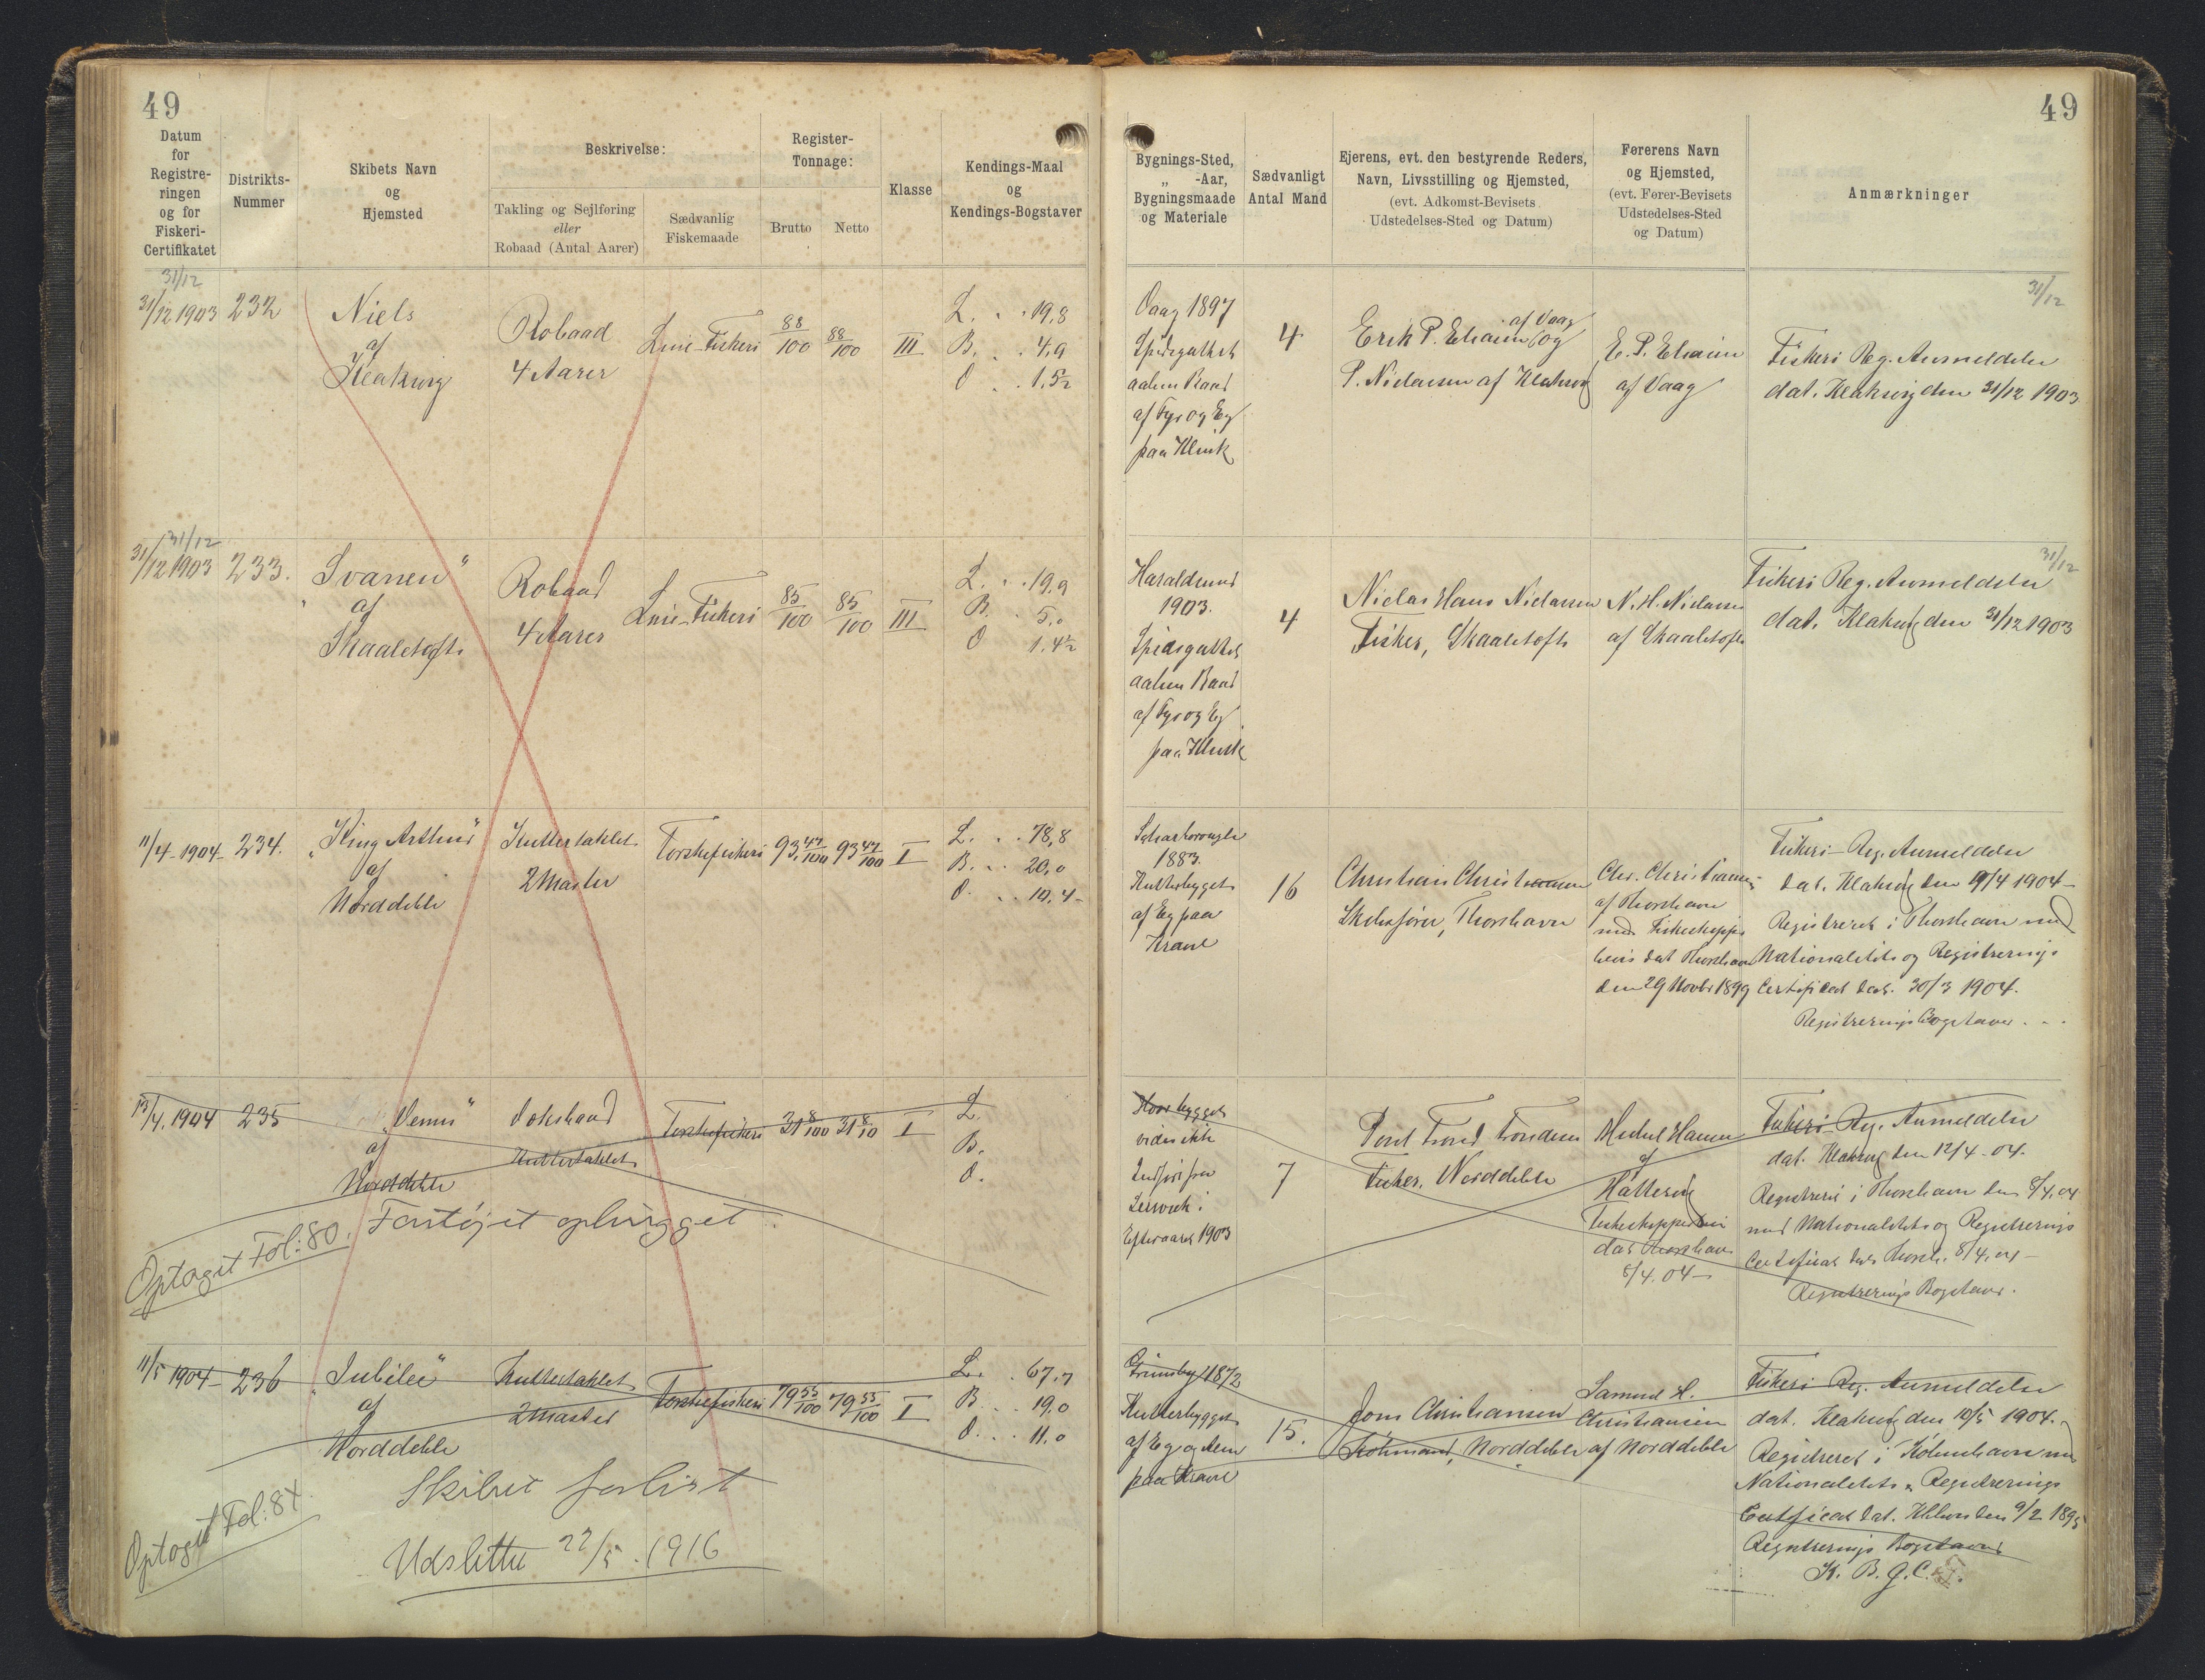 49
49
Datum
for
Registre-
ringen
og for
Fiskeri-
Certifikatet
Distrikts-
Nummer
Skibets Navn
og
Hjemsted
Beskrivelse:
Takling og Sejlføring
eller
Robaad (Antal Aarer)
Sædvanlig
Fiskemaade
Register-
Tonnage:
Brutto
Netto
Klasse
Kendings-Maal
og
Kendings-Bogstaver
Bygnings-Sted,
„ -Aar,
Bygningsmaade
og Materiale
Sædvanligt
Antal Mand
Ejerens, evt. den bestyrende Reders,
Navn, Livsstilling og Hjemsted,
(evt. Adkomst-Bevisets
Udstedelses-Sted og Datum)
Førerens Navn
og Hjemsted,
(evt. Fører-Bevisets
Udstedelses-Sted
og Datum)
Anmærkninger
31/12
31/12 1903
232
Niels
af
Klaksvig
Robaad
4 Aarer
Line-Fiskeri
88/100
88/100
III
L. . . 19,8
B. . . 4,9
D . . 1,5½
Vaag 1897
Spidsgattet
aaben Baad
af Fyr og Eg
paa Klink
4
af Vaag
Erik P. Eliasen og
P. Niclasen af Klaksvig
E. P. Eliasen
af Vaag
31/12
Fiskeri Reg. Anmeldelse
dat. Klaksvig den 31/12 1903
31/12
31/12 1903
233.
Svanen"
af
Skaaletofte
Robaad
4 Aarer
Line-Fiskeri
85/100
85/100
III
L. . . 19,9
B. . 5,0
D 1,4½
Haraldsund
1903.
Spidsgattet
aaben Baad
af Fyr og Eg
paa Klink
4
Niclas Hans Niclasen
Fisker, Skaaletofte
N. H. Niclasen
af Skaaletofte
31/12
Fiskeri Reg. Anmeldelse
dat. Klaksvig den 31/12 1903
11/4-1904-
234.
„King Arthur"
af
Norddeble
Kuttertaklet
2 Master
Torskefiskeri
93 47/100
93 47/100
I
L. . . 78,8
B. . . 20,0
D. . . 10,4-
Scharborough
1883.
Kutterbygget
af Eg paa
Kravel
16
Christian Christiansen
Skibsfører, Thorshavn
Chr. Christiansen
af Thorshavn
med Fiskeskipper
bevis dat Thorshavn
den 29 Novbr 1899
Fiskeri-Reg. Anmeldelse
dat. Klaksvig den 9/4 1904-
Registreret i Thorshavn med
Nationalitets og Registrerings
Certificat dat. 30/3 1904.
Registrerings Bogstaver . . .
13/4. 1904
235
„Venus"
af
Norddeble
Dæksbaad
Kuttertaklet
Torskefiskeri
31 8/100
31 8/10
I
L.
B.
D.
Fartøjet ophugget.
Optaget Fol: 80.
Hvor bygget
vides ikke
Indført fra
Lerwick i
Efteraaret 1903
7
Poul Trond Trondesen
Fisker, Norddeble
Michel Hansen
af
Hattervig
Fiskeskipperbevis
dat Thorshavn
8/4. 04-
Fiskeri-Reg. Anmeldelse
dat. Klaksvig den 12/4-04.
Registreret i Thorshavn den 8/4.04
med Nationalitets og Registrerings
Certificat dat. Thorsh. 8/4.04-
Registrerings Bogstaver.
11/5 1904-
236
„Jubilee"
af
Norddeble
Kuttertaklet
2 Master
Torskefiskeri
79 55/100
79 55/100
I
L. . 67,7
B. . . 19,0
D. . . 11,0
Skibet forlist
Udslettet 22/5. 1916
Optaget Fol: 84.
Grimsby 1872
Kutterbygget
af Eg og Elm
paa Kravel
15.
Joen Christiansen
Købmand, Norddeble
Samuel H.
Christiansen
af Norddeble
Fiskeri Reg. Anmeldelse
dat. Klaksvig den 10/5 1904.
Registreret i København med
Nationalitets & Registrerings
Certificat dat. Kbhvn den 9/2 1895
Registrerings Bogstaver
K. B. G. C.